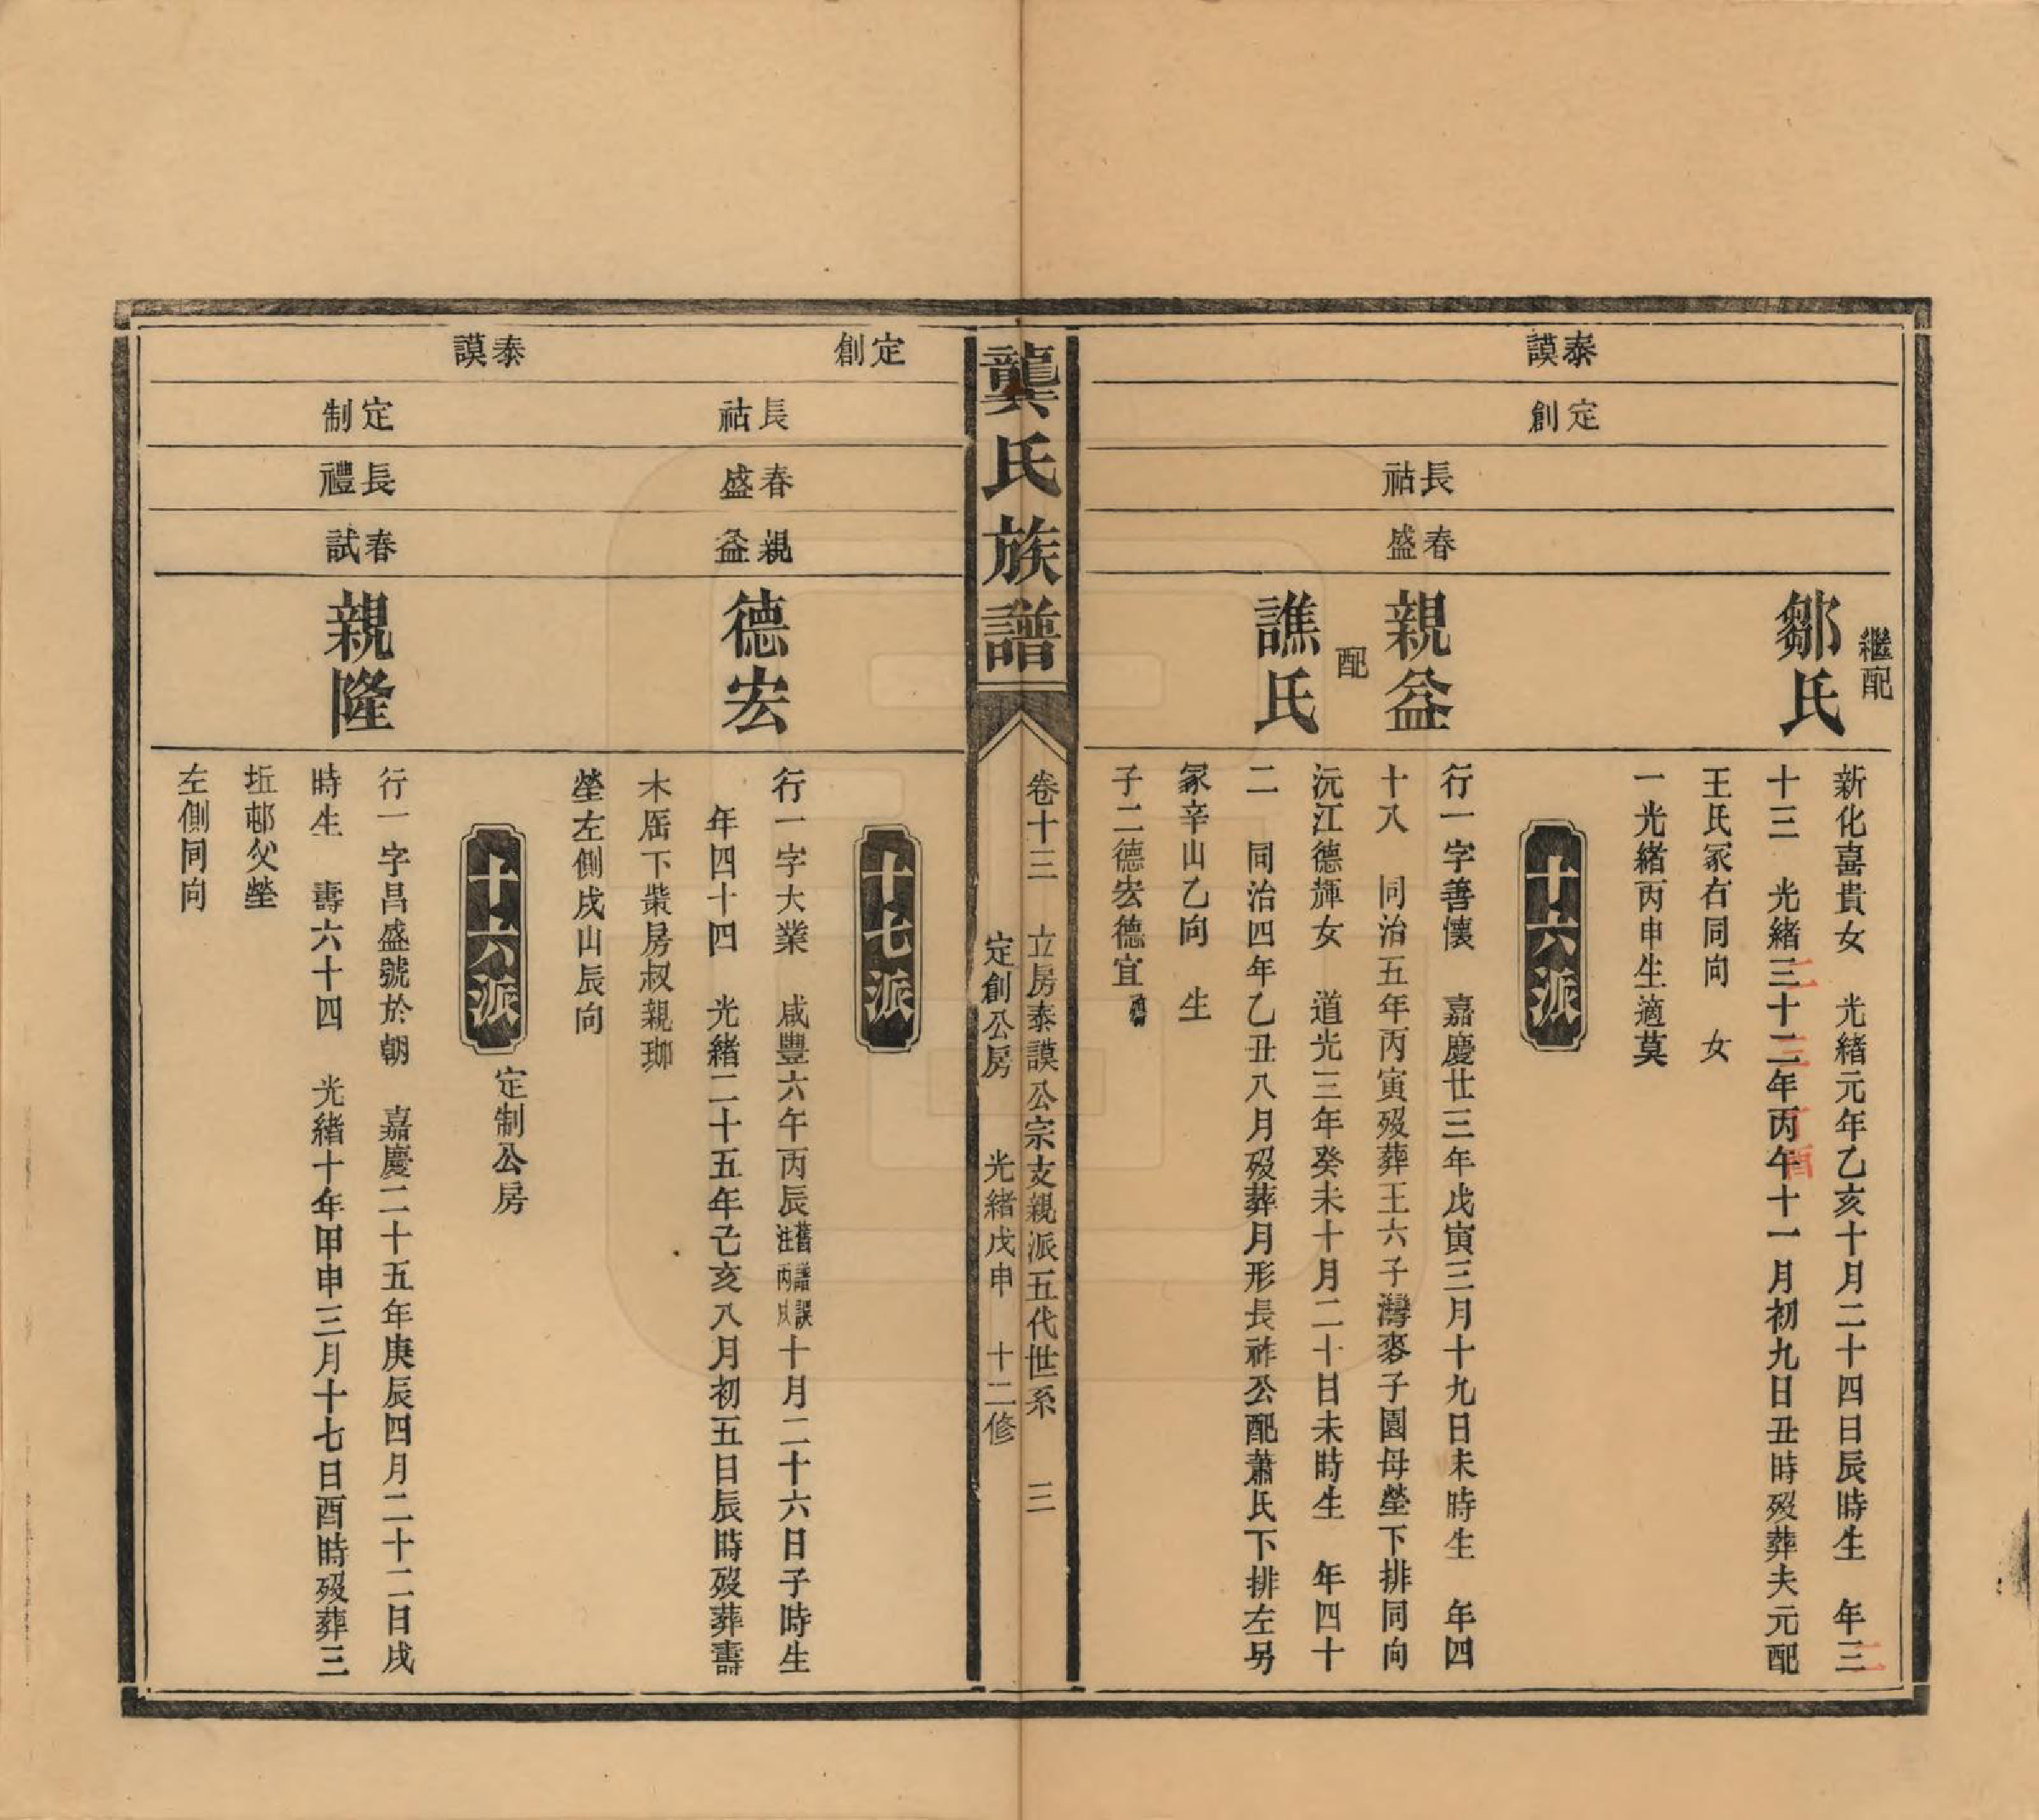 泰謨
定創
繼配
鄒氏
新化喜貴女　光緒元年乙亥十月二十四日辰時生　年三
二
十三　光緒三十二年丙午十一月初九日丑時歿葬夫元配
二　三　丁酉
王氏冢右同向　女
一光緒丙申生適莫
十六派
長祜
春盛
親益
行一字善懷　嘉慶廿三年戊寅三月十九日未時生　年四
十八　同治五年丙寅歿葬王六子灣麥子園母塋下排同向
配
譙氏
沅江德輝女　道光三年癸未十月二十日未時生　年四十
二　同治四年乙丑八月歿葬月形長祚公配蕭氏下排左另
冢辛山乙向　生
子二德宏德宜
龔氏族譜
卷十三　立房泰謨公宗支親派五代世系　三
定創公房　光緒戊申　十二修
定創
長祜
春盛
親益
十七派
德宏
行一字大業　咸豐六年丙辰舊譜誤注丙戌十月二十六日子時生
年四十四　光緒二十五年己亥八月初五日辰時歿葬壽
木厝下柴房叔親瑯
塋左側戌山辰向
泰謨
定制
長禮
春試
十六派　定制公房
親隆
行一字昌盛號於朝　嘉慶二十五年庚辰四月二十二日戌
時生　壽六十四　光緒十年甲申三月十七日酉時歿葬三
坵邨父塋
左側同向